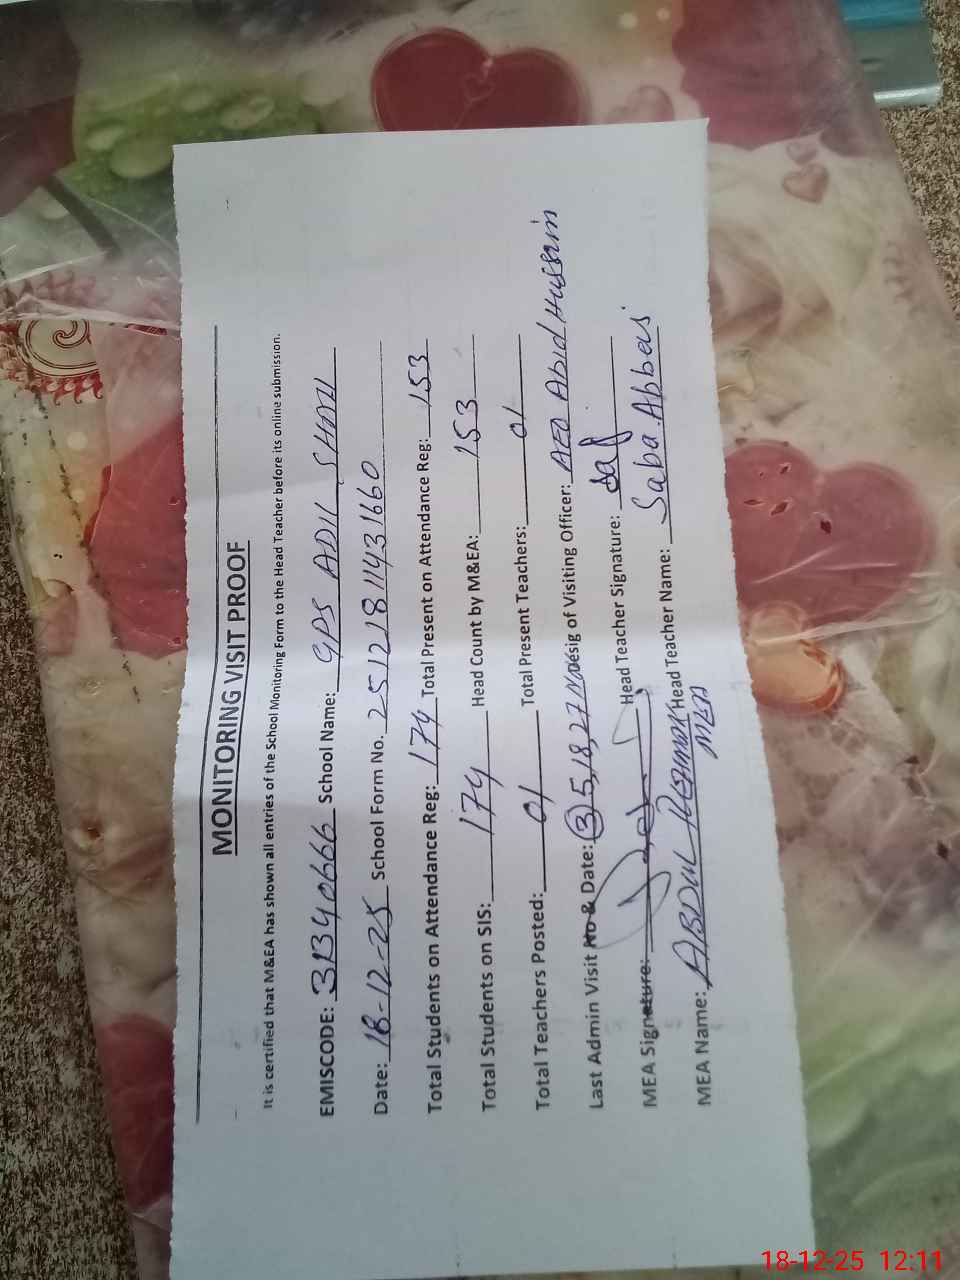 MONITORING VISIT PROOF
It is certified that M&EA has shown all entries of the School Monitoring Form to the Head Teacher before its online submission.
EMISCODE: 31340666 School Name: GPS ADIL SHAH
Date: 18-12-25 School Form No. 25121811431660
Total Students on Attendance Reg: 174 Total Present on Attendance Reg: 153
Total Students on SIS: 174 Head Count by M&EA: 153
Total Teachers Posted: 01 Total Present Teachers: 01
Last Admin Visit No & Date: (3) 5,18,27 Nov Desig of Visiting Officer: AEO Abid Hussain
MEA Signature: Head Teacher Signature:
MEA Name: ABDUL Rehman Head Teacher Name: Saba Abbas
MEA
18-12-25 12:11